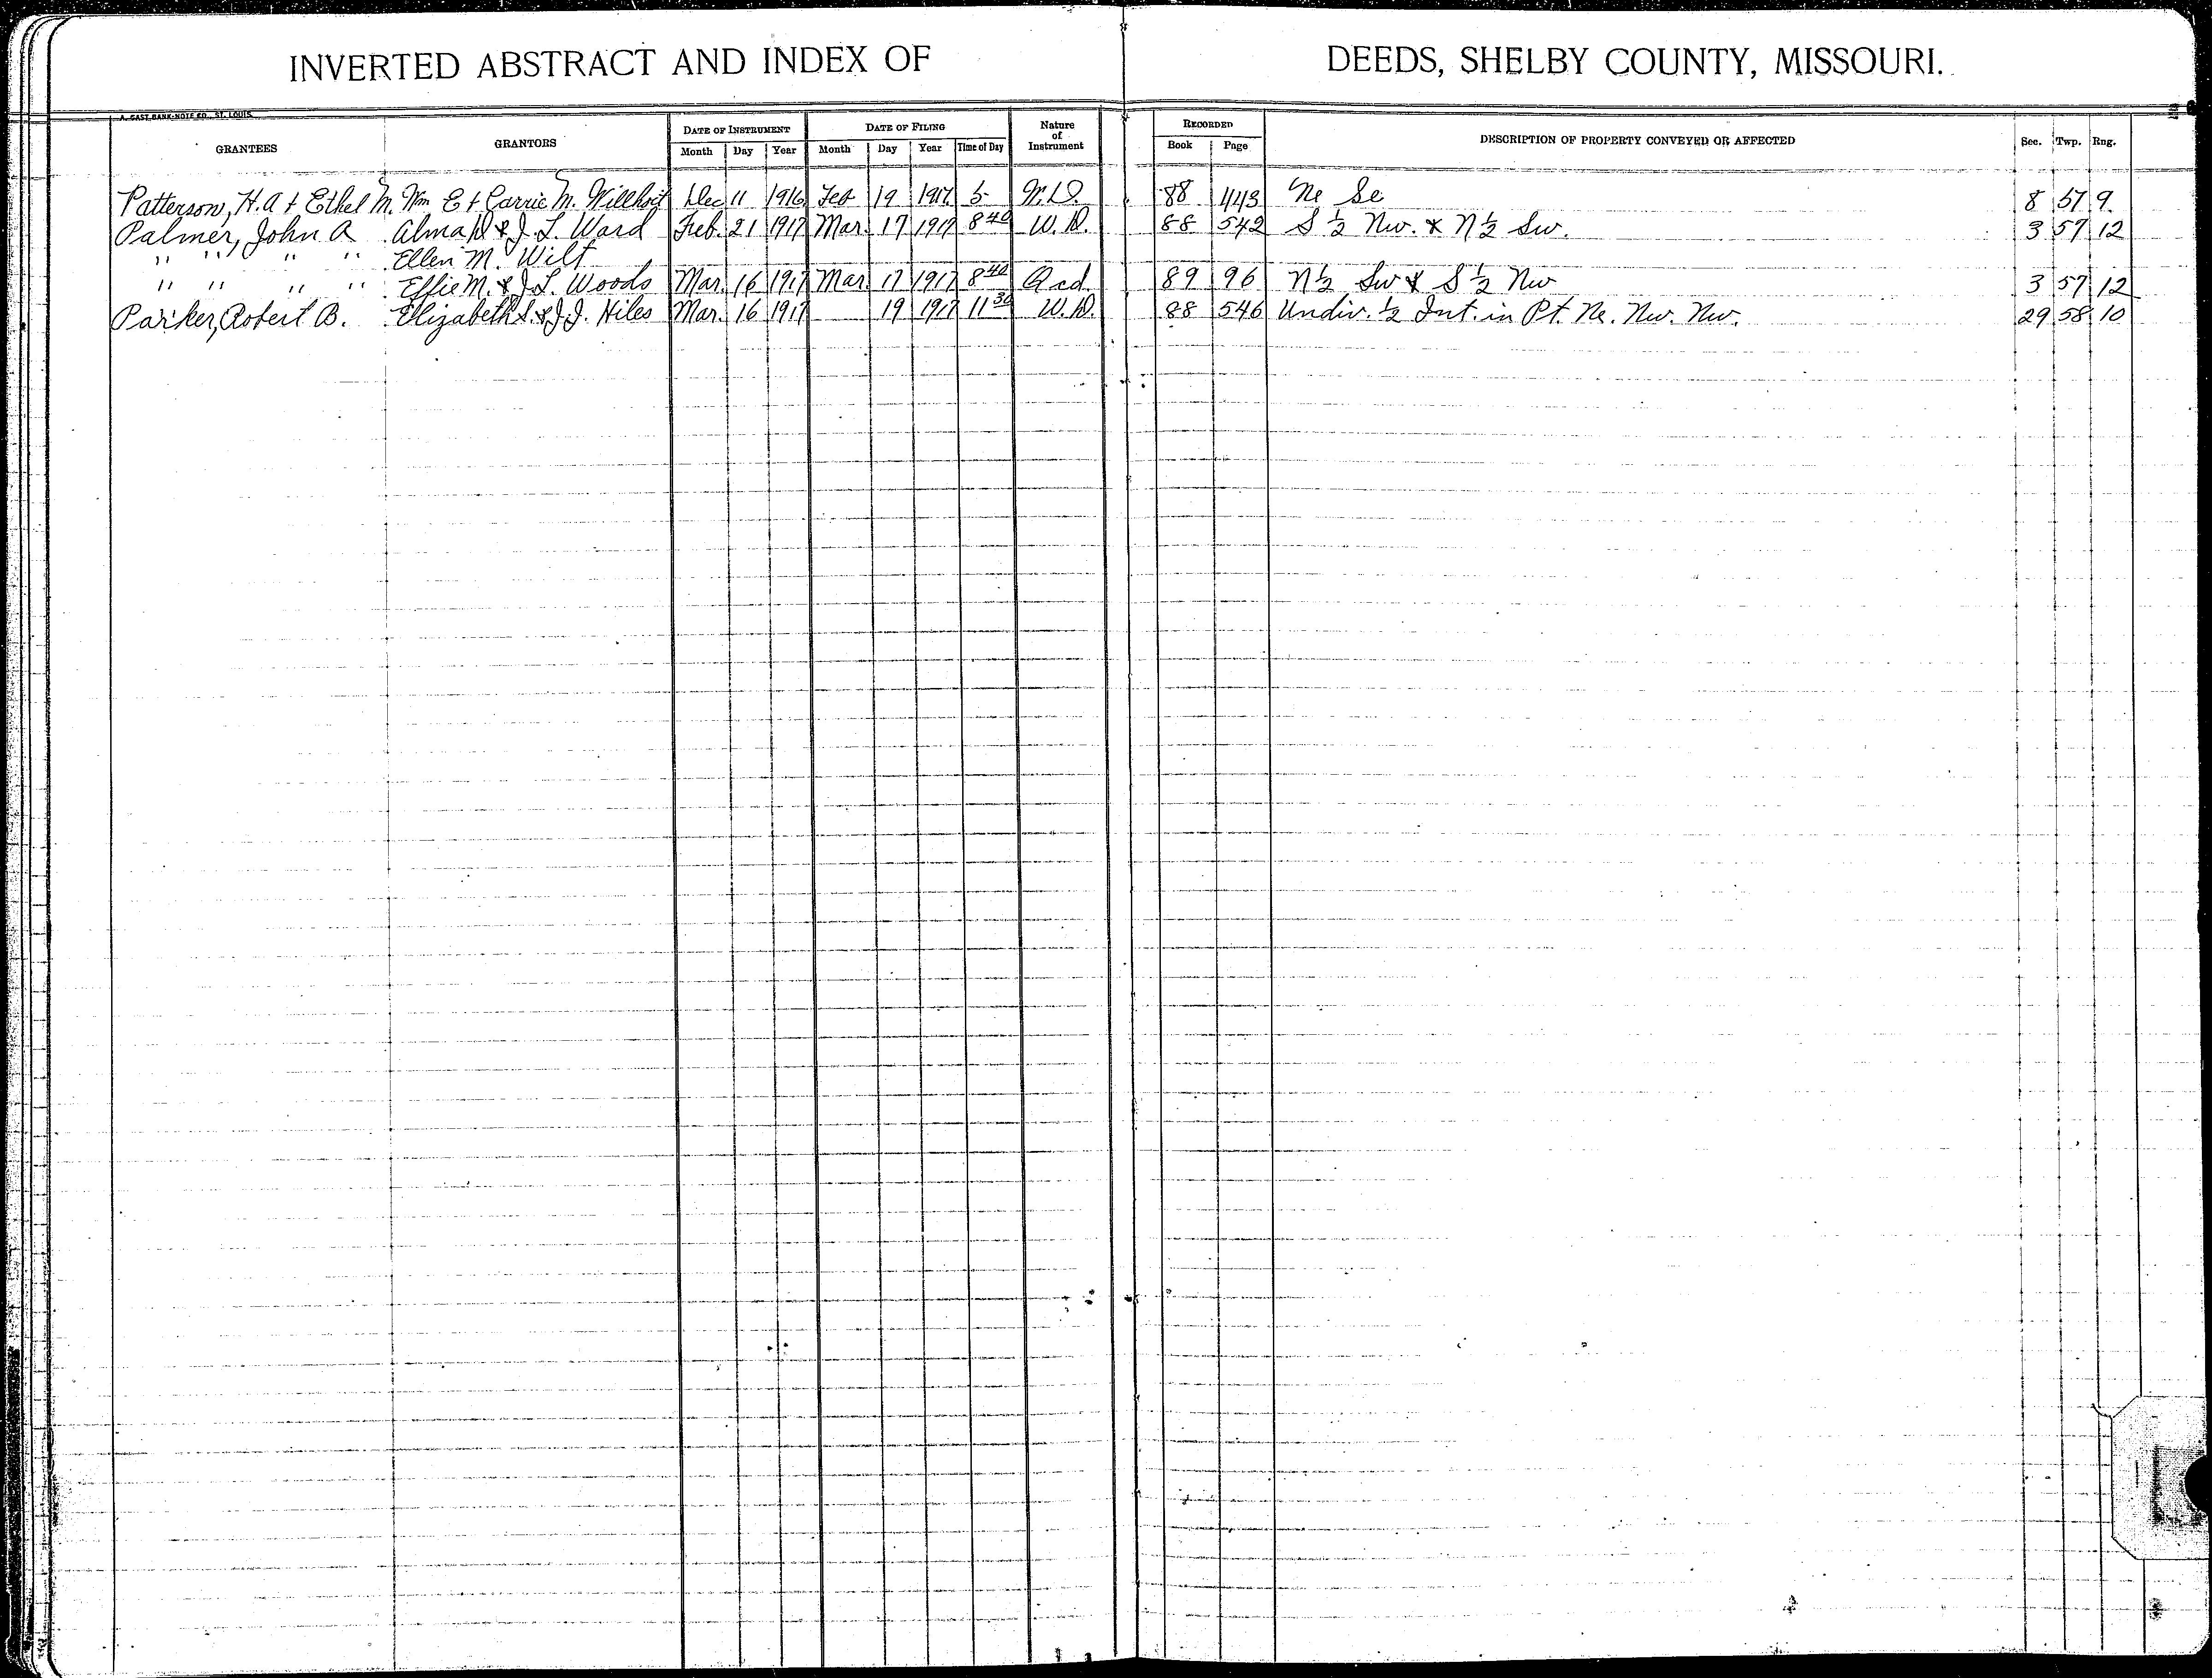 INVERTED ABSTRACT AND INDEX OF DEEDS, SHELBY COUNTY, MISSOURI.
A. GAST BANK-NOTE CO., ST. LOUIS
GRANTEES GRANTORS DATE OF INSTRUMENT DATE OF FILING Nature of Instrument RECORDED DESCRIPTION OF PROPERTY CONVEYED OR AFFECTED Sec. Twp. Rng.
Month Day Year Month Day Year Time of Day Book Page
Patterson, H. A + Ethel M. Wm E + Carrie M. Willhoit Dec 11 1916 Feb 19 1917 5 W.D. 88 443 Ne Se 8 57 9.
Palmer, John A Alma & J. L. Ward Feb. 21 1917 Mar. 17 1917 8 40 W. D. 88 542 S ½ Nw. & N ½ Sw. 3 57 12
" " " " Ellen M. Wilt
" " " " Effie M. & J. L. Woods Mar. 16 1917 Mar. 17 1917 8 40 Qcd 89 96 N½ Sw & S ½ Nw 3 57 12
Parker, Robert B. Elizabeth & J. J. Hiles Mar. 16 1917 19 1917 11 30 W. D. 88 546 Undiv. ½ Int. in Pt. Ne. Nw. Nw. 29 58 10